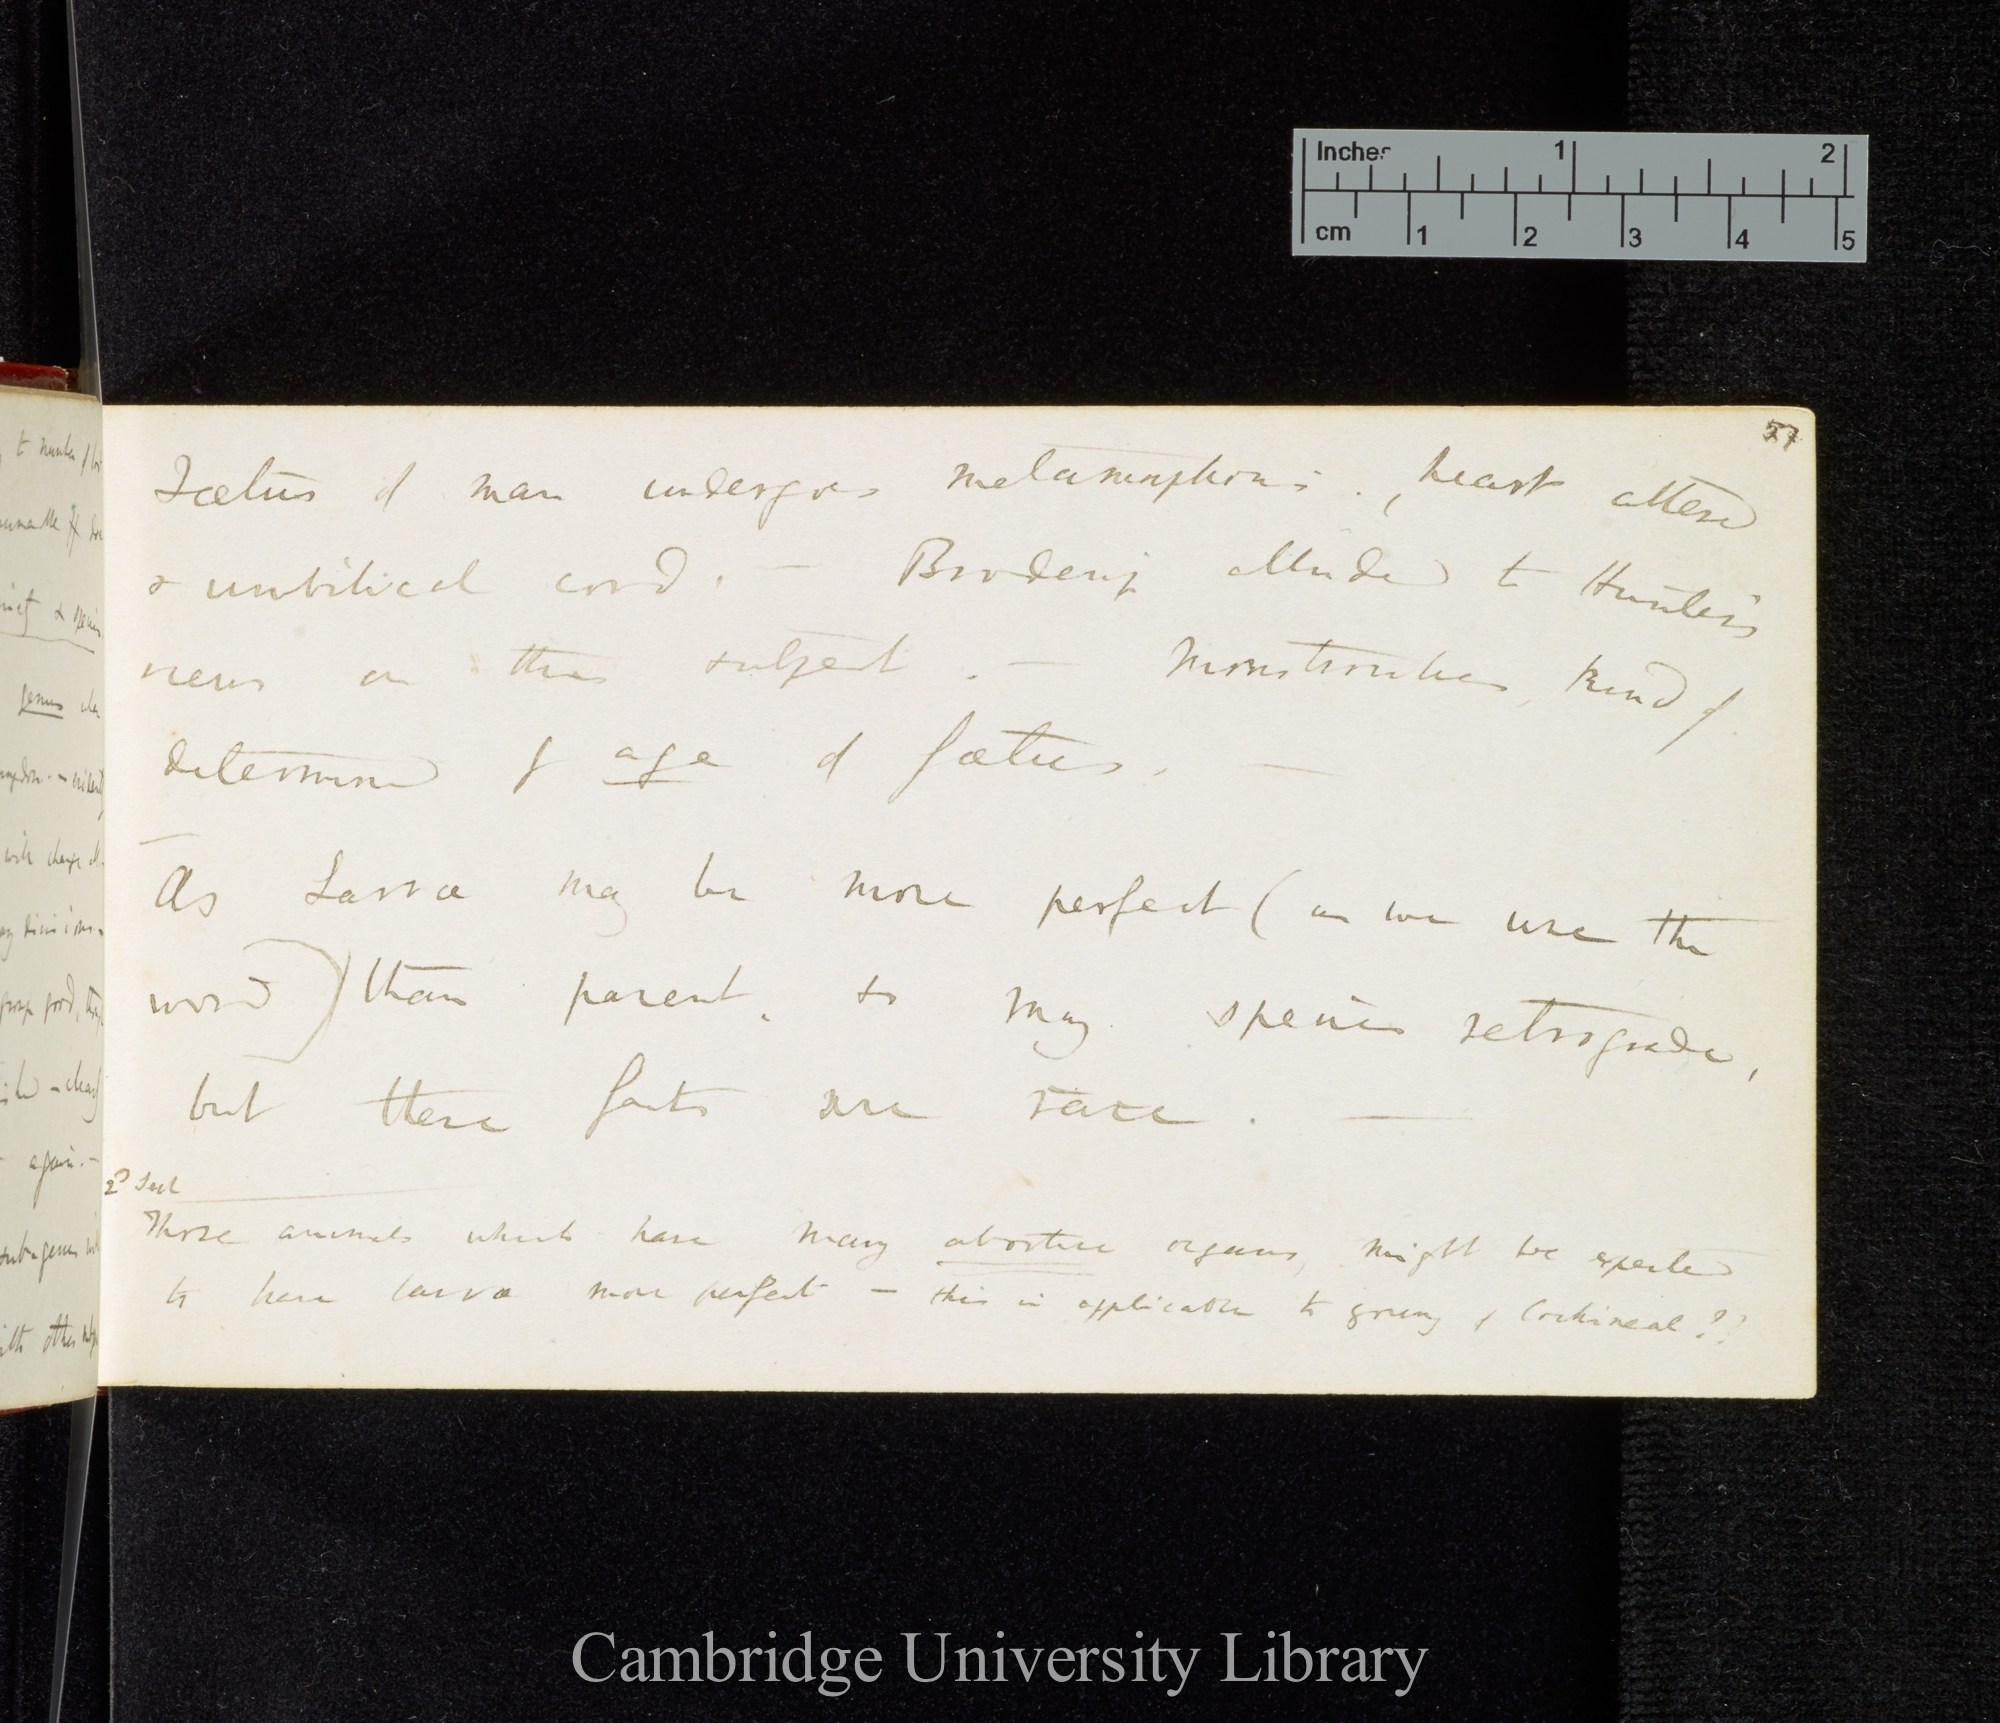 Inches 1 2
cm 1 2 3 4 5
57
Fœtus of man undergoes metamorphosis., heart altered
& umbilical cord. — Broderip alluded to Hunter's
views on this subject. — Monstrosities, kind of
determined by age of fœtus. —
As Larva may be more perfect (as we use the
word) than parent, so may species retrograde,
but these facts are rare. —
Those animals which have many abortive organs, might be expected
to have larva more perfect — this is applicable to young of Cochineal??
to number
genus
again.—
Cambridge University Library